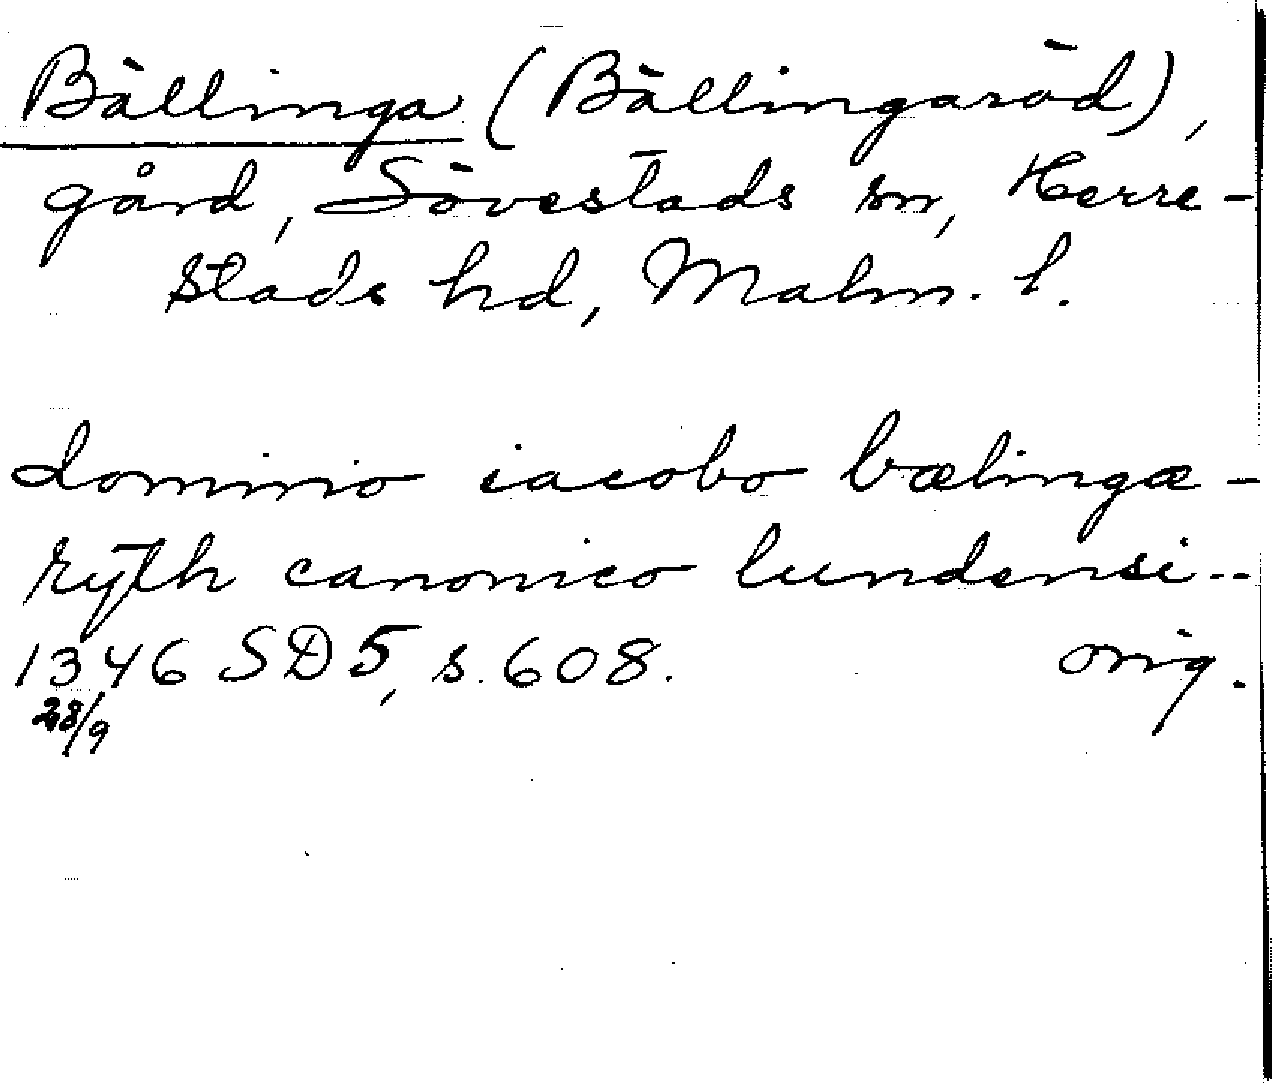 Bällinga (Bällingaröd),
gård, Sövestads sn, Herre-
stads hd, Malm. l.
domino iacobo bælingæ-
ryth canonico lundensi..
1346 SD 5, s. 608. orig.
28/9